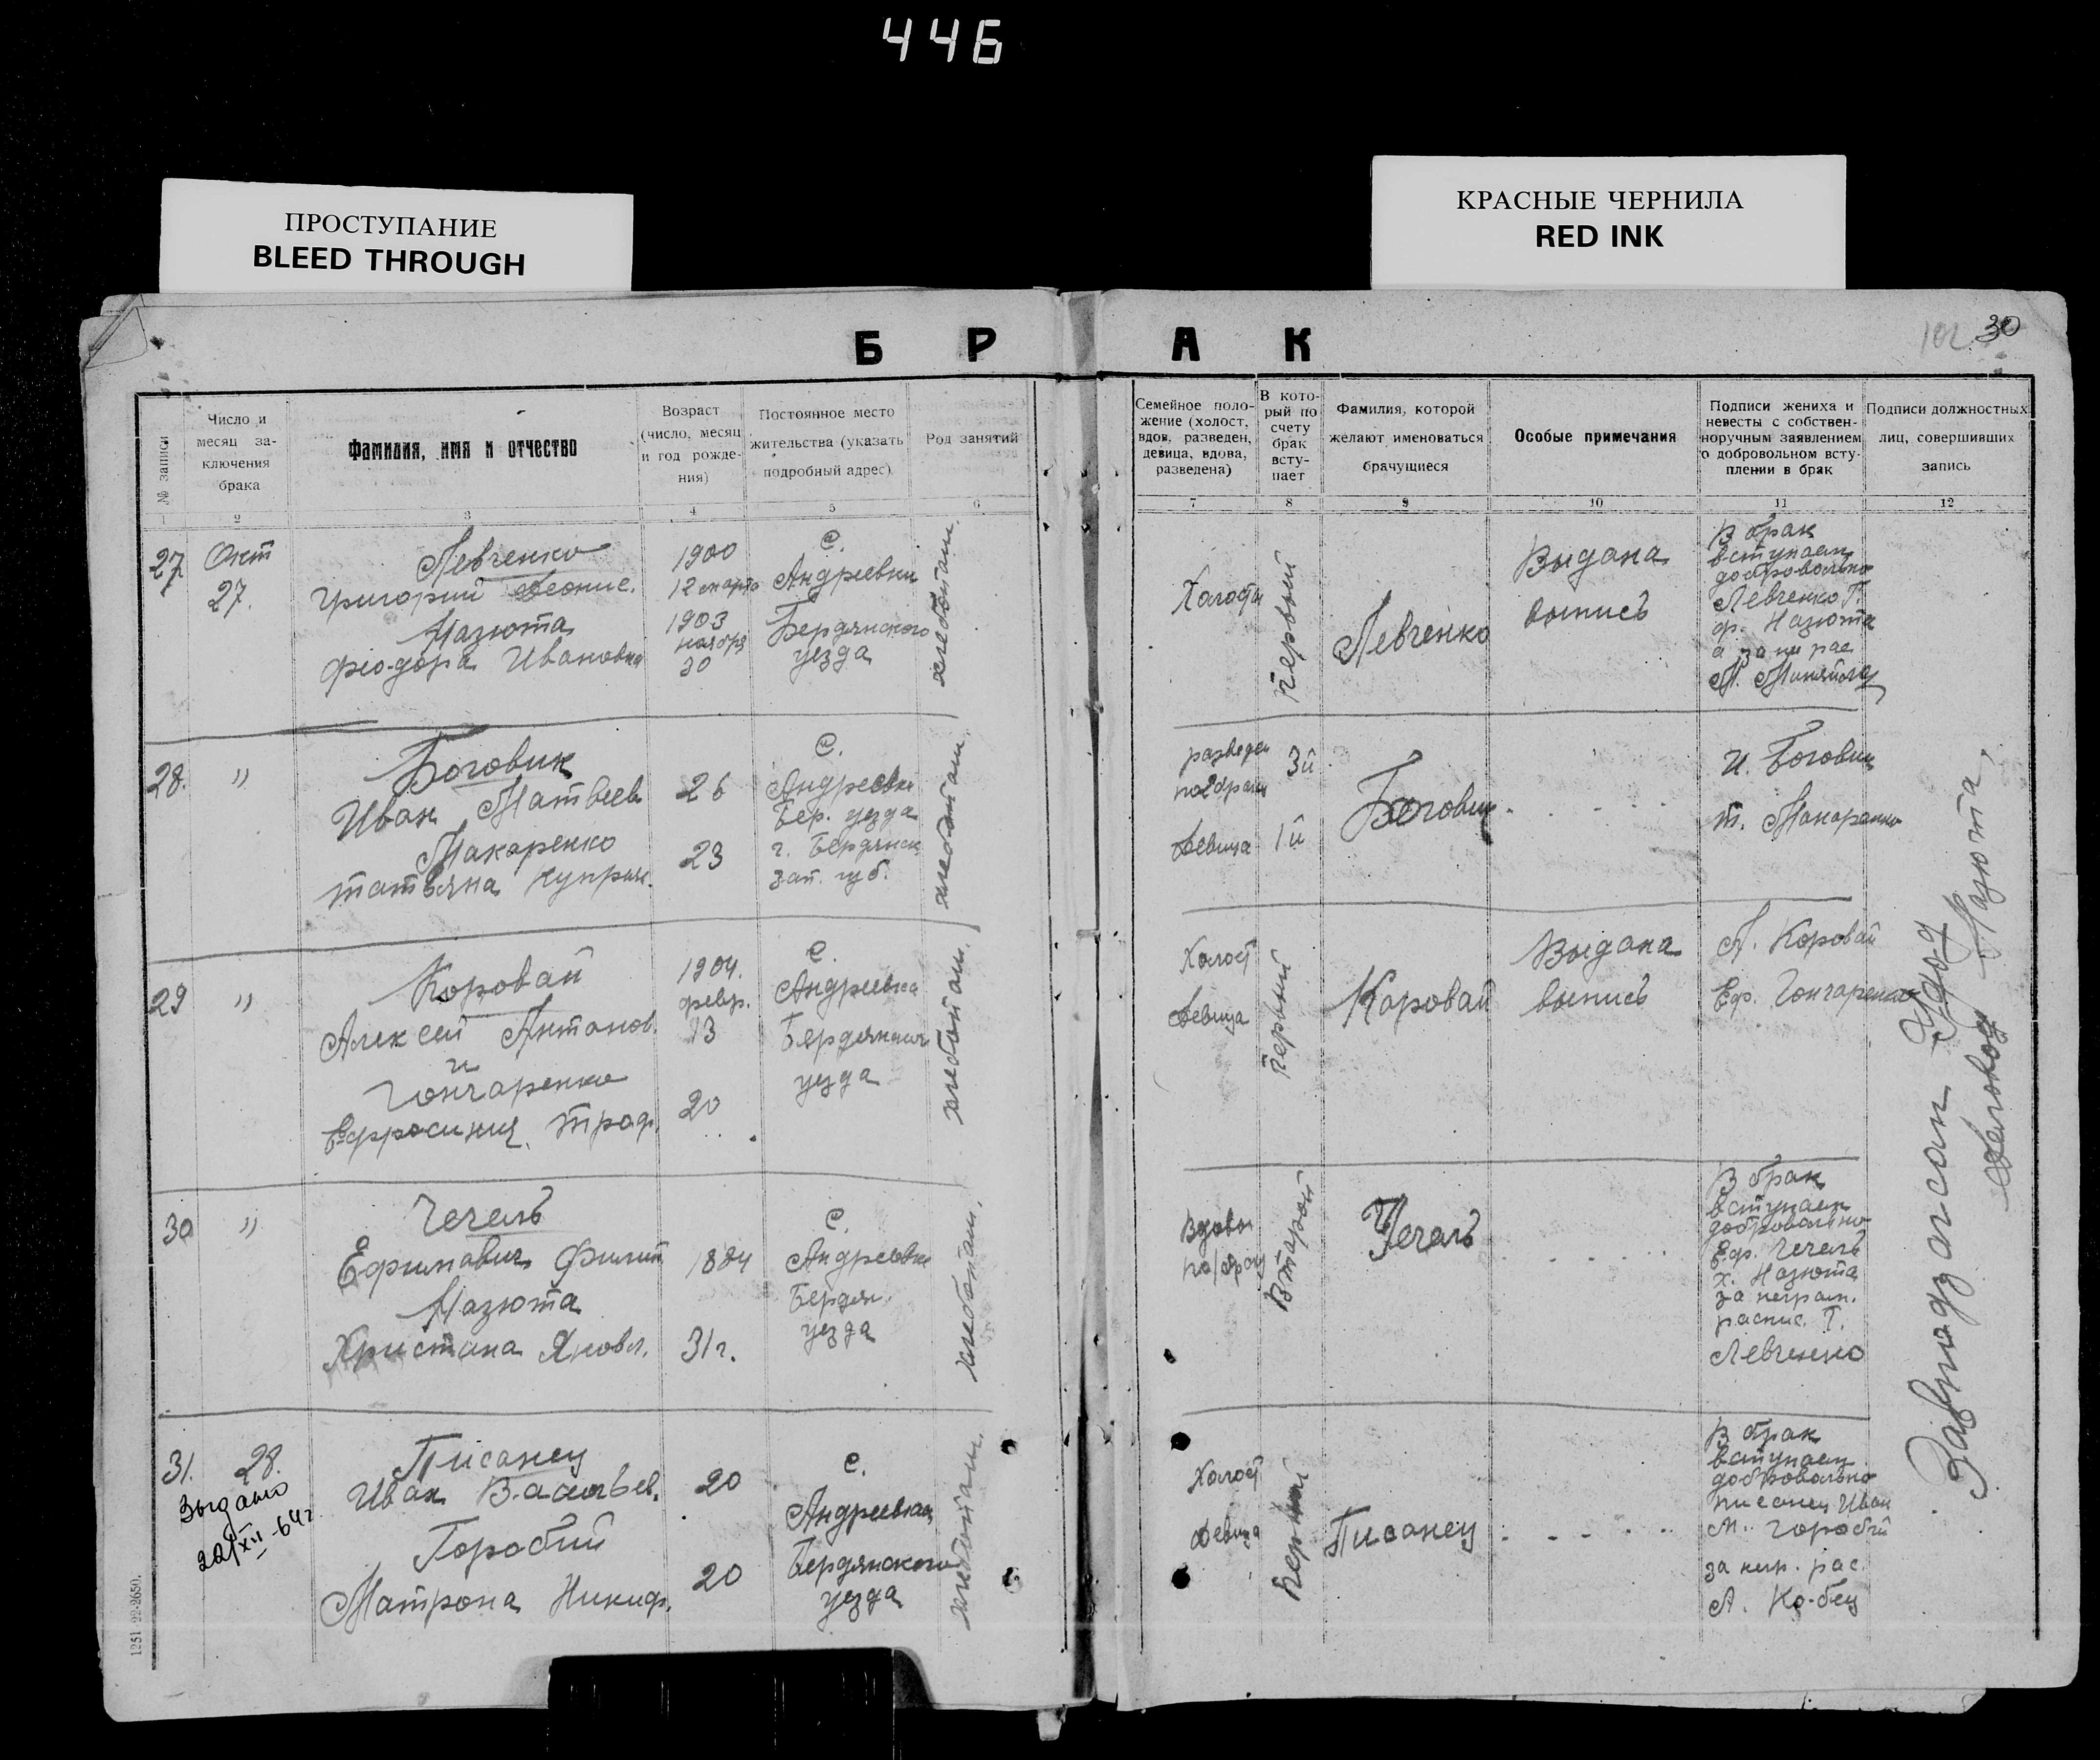 446
ПРОСТУПАНИЕ
BLEED THROUGH
КРАСНЫЕ ЧЕРНИЛА
RED INK
БРАК
102 30
№ записи
Число и месяц за-
ключения
брака
Фамилия, имя и отчество
Возраст
(число, месяц
и год рожде-
ния)
Постоянное место
жительства (указать
подробный адрес)
Род занятий
Семейное поло-
жение (холост,
вдов, разведен,
девица, вдова,
разведена)
В кото-
рый по
счету
брак
всту-
пает
Фамилия, которой
желают именоваться
брачущиеся
Особые примечания
Подписи жениха и
невесты с собствен-
норучным заявлением
о добровольном всту-
плении в брак
Подписи должностных
лиц, совершивших
запись
1 2 3 4 5 6 7 8 9 10 11 12
27
Окт
27.
Левченко
Григорий Леонт.
Мазюта
Феодора Ивановна
1900
12 марта
1903
ноября
30
с.
Андреевки
Бердянского
уезда
хлебопаш.
Холосты
Первый
Левченко
Выдана
выпись
В брак
вступаем
добровольно
Левченко Г.
Ф. Мазюта
а за не рас
28.
"
Боговик
Иван Матвеев
Макаренко
Татьяна Куприян.
26
23
с.
Андреевки
Бер. уезда
г. Бердянск
Зап. губ.
хлебопаш.
разведен
по 2 браку
девица
3й
1й
Боговик
И. Боговик
Т. Макаренко
29
"
Коровай
Алексей Антонов.
и
Гончаренко
Ефросиния Троф.
1904.
февр.
13
20
с.
Андреевка
Бердянского
уезда
хлебопаш.
Холост
девица
Первый
Коровай
Выдана
выпись
А. Коровай
Еф. Гончаренко
30
"
Чечель
Ефимович Филип
Мазюта
Христина Яковл.
1884
31 г.
с.
Андреевки
Бердян.
уезда
хлебопаш.
Вдовы
по 1 браку
Второй
Чечель
В брак
вступаем
добровольно
Еф. Чечель
Х. Мазюта
за неграм.
распис. Г.
Левченко
31.
28.
Выдано
22/XII-64 г.
Писанец
Иван Васильев.
Горобий
Матрона Никиф.
20
20
с.
Андреевка
Бердянского
уезда
хлебопаш.
Холост
девица
Первый
Писанец
В брак
вступаем
добровольно
Писанец Иван
М. Горобий
за негр. рас.
А. Кобец
Завподзагсом
Деловод Мазюта
1251 22-2650.